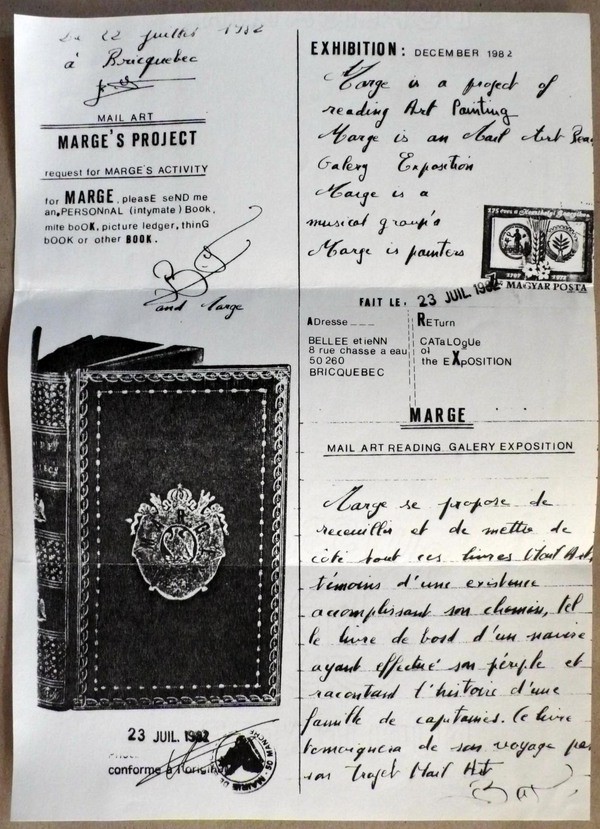 Le 22 juillet 1982
à Bricquebec
MAIL ART
MARGE'S PROJECT
request for MARGE'S ACTIVITY
for MARGE, pleasE seND me
an,PERSONnAL (intymate) Book,
mite boOK, picture ledger, thinG
bOOK or other BOOK.
and Marge
MARGE
23 JUIL. 1982
conforme à l'original
MAIRIE DE
MANCHE
EXHIBITION: DECEMBER 1982
Marge is a project of
reading Art Painting
Marge is an Mail Art
Galery Exposition
Marge is a
musical group's
Marge is painters
MAGYAR POSTA
FAIT LE: 23 JUIL 1982
ADresse ___
BELLEE etieNN
8 rue chasse a eau
50 260
BRICQUEBEC
RETurn
CATaLOgUe
of
the EXpOSITION
MARGE
MAIL ART READING GALERY EXPOSITION
Marge se propose de
recueillir et de mettre de
côté tout ces livres Mail Art,
témoins d'une existence
accomplissant son chemin, tel
le livre de bord d'un navire
ayant effectué son périple et
racontant l'histoire d'une
famille de capitaines. Ce livre
temoignera de son voyage par
son trajet Mail Art